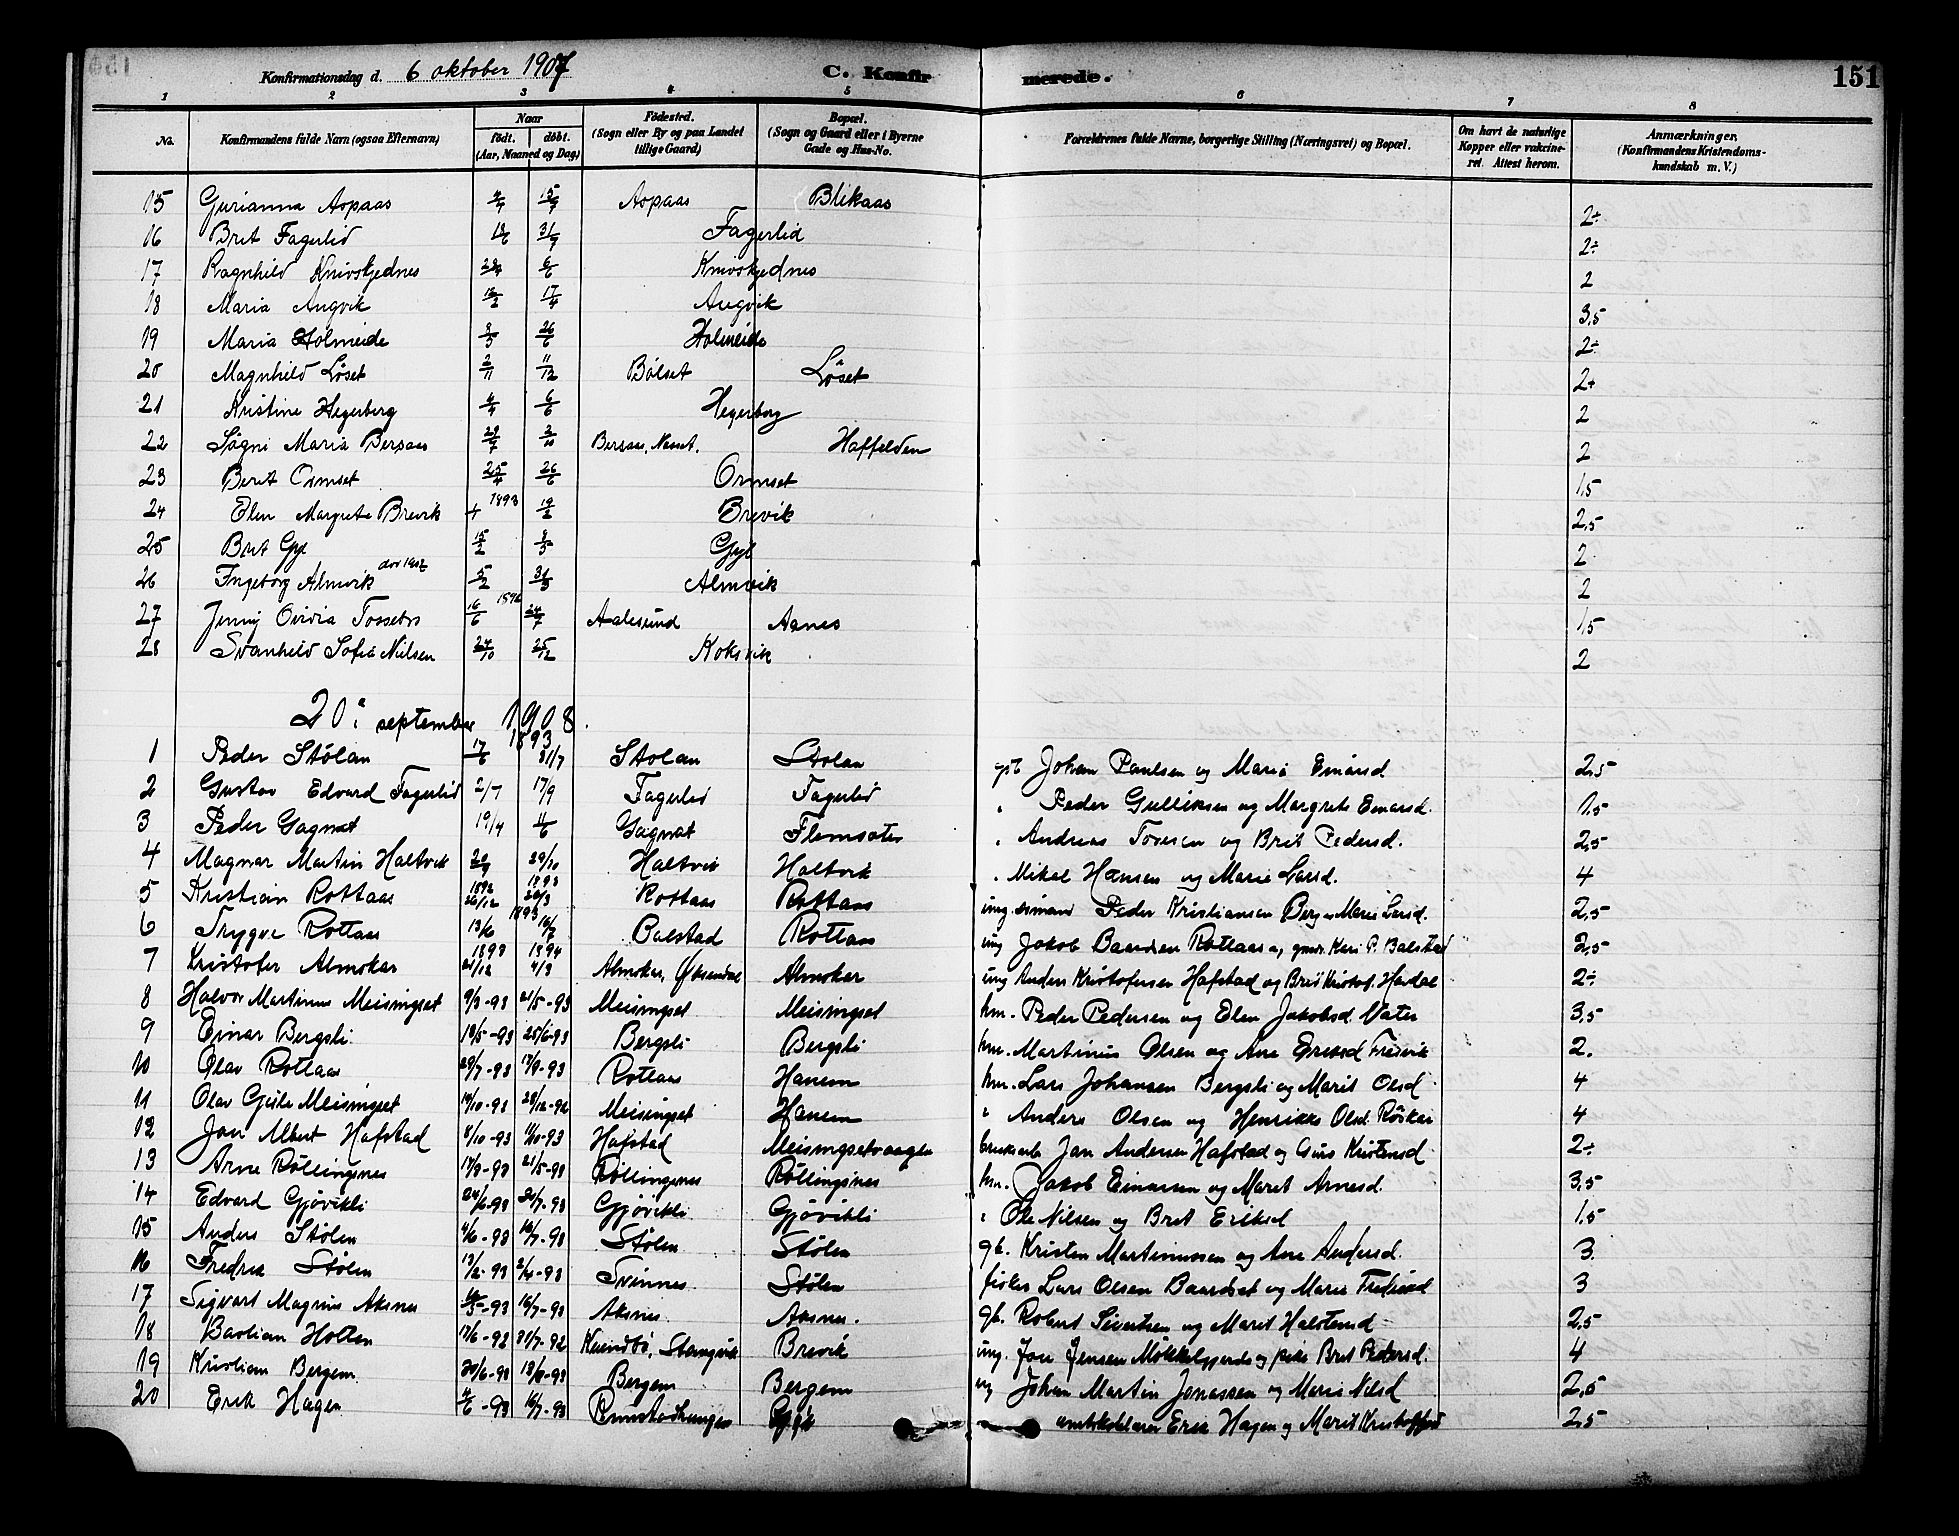 Konfirmationsdag d. 6 oktober 1907 C. Konfirmerede. 151
1 2 3 4 5 6 7 8
No. Konfirmandens fulde Navn (ogsaa Efternavn) Naar født. døbt. (Aar, Maaned og Dag) Fødested. (Sogn eller By og paa Landet tillige Gaard) Bopæl. (Sogn og Gaard eller i Byerne Gade og Hus-No. Forældrenes fulde Navne, borgerlige Stilling (Næringsvei) og Bopæl. Om havt de naturlige Kopper eller vakcineret. Attest herom. Anmærkninger. (Konfirmandens Kristendomskundskab m. V.)
15 Gurianna Aspaas Aspaas Blikaas 2÷
16 Brit Fagerlid 31/7 Fagerlid 2÷
17 Ragnhild Knivskjednes 6/6 Knivskjednes 2
18 Maria Angvik 17/4 Angvik 3,5
19 Maria Holmeide 26/6 Holmeide 2÷
20 Magnhild Löset 2/11 11/12 Bölset Löset 2+
21 Kristine Hegerberg 4/4 6/6 Hegerberg 2
22 Maria Bersaas 29/7 2/10 Bersaas, Nesset. Haffelden 2
23 Berit Ormset 25/4 26/6 Ormset 1,5
24 Elen Margrete Brevik 1893 19/2 Brevik 2,5
25 Brit Gyl 15/2 Gyl 2
26 Ingeborg Almvik 5/2 31/3 Almvik 2
27 Jenny 16/6 24/7 Aalesund Aanes 1,5
28 Svanhild Sofie Nilsen 24/10 25/12 Koksvik 2
20. september 1908.
1893
1 Peder Stölan 17/6 31/7 Stolan Stolan Johan Paulsen og Maria Einarsd 2,5
2 Gustav Edvard Fagerlid 2/7 17/9 Fagerlid Fagerlid " Peder Gulliksen og Margrete Einarsd. 1,5
3 Peder Gagnat 19/4 4/6 Gagnat Flemsæter " Andreas Toresen og Brit Pedersd. 2,5
4 Magnar Martin Haltvik 20/9 29/10 Haltvik Haltvik " Mikal Hansen og Marie Larsd. 4
5 Kristian Rottaas 1892 26/12 1893 26/3 Rottaas Rottaas ung. Peder Kristiansen Marie Larsd. 2,5
6 Trygve Rottaas 13/6 1893 16/7 Balstad Rottaas ung Jakob Baardsen Rottaas Kari P. Balstad 2,5
7 Kristofer Almskar 1893 21/12 1894 4/3 Almskar, Öksendal Almskar ung Anders Kristofersen Hafstad og Brit Kristof. 2÷
8 Halvor Martinus Meisingset 9/3-93 21/5-93 Meisingset Meisingset km. Peder Pedersen og Elen Jakobsd. Vater 3,5
9 Einar Bergsli 18/5-93 25/6-93 Bergsli Bergsli km. Martinus Olsen og Ane Eriksd Freivik 2.
10 Olav Rottaas 29/7-93 17/9-93 Rottaas Hanem km. Lars Johansen Bergsli og Marit Olsd 4
11 Olav Gisle Meisingset 14/10-93 Meisingset Hanem " Anders Olsen og Henrikke Olsd. Röskar 4
12 Jon Albert Hafstad 4/10-93 Hafstad Meisingsetvaagen Jon Andersen Hafstad og Guri Kristensd 2÷
13 Arne Röllingsnes 17/3-93 21/5-93 Röllingsnes Röllingsnes km. Jakob Einarsen og Maret Arnesd. 3,5
14 Edvard Gjövikli 24/6-93 Gjövikli Gjövikli " Ole Nilsen og Brit Eriksd 1,5
15 Anders Stölen 4/6-93 16/7-93 Stölen Stölen gb. Kristen Martinussen og Ane Andersd. 3.
16 Fredrik Stölen 13/2-93 2/4-93 Svinnes Stölen fisker Lars Olsen Baardset og Marie Fredriksd 3
17 Sigvart Magnus Aksnes 16/7-93 Aksnes Aksnes. gb. Robert Sivertsen og Marit Halstensd 2,5
18 Bastian Holten 17/6-92 31/7-92 Kvindbö, Stangvik Brevik ung. Jon Jensen og pike Brit Pedersd. 4
19 Kristian Bergem 25/6-93 Bergem Bergem ug Johan Martin Jonassen og Marie Nilsd 2,5
20 Erik Hagen 4/6-93 16/7-93 Erik Hagen og Marit 2,5